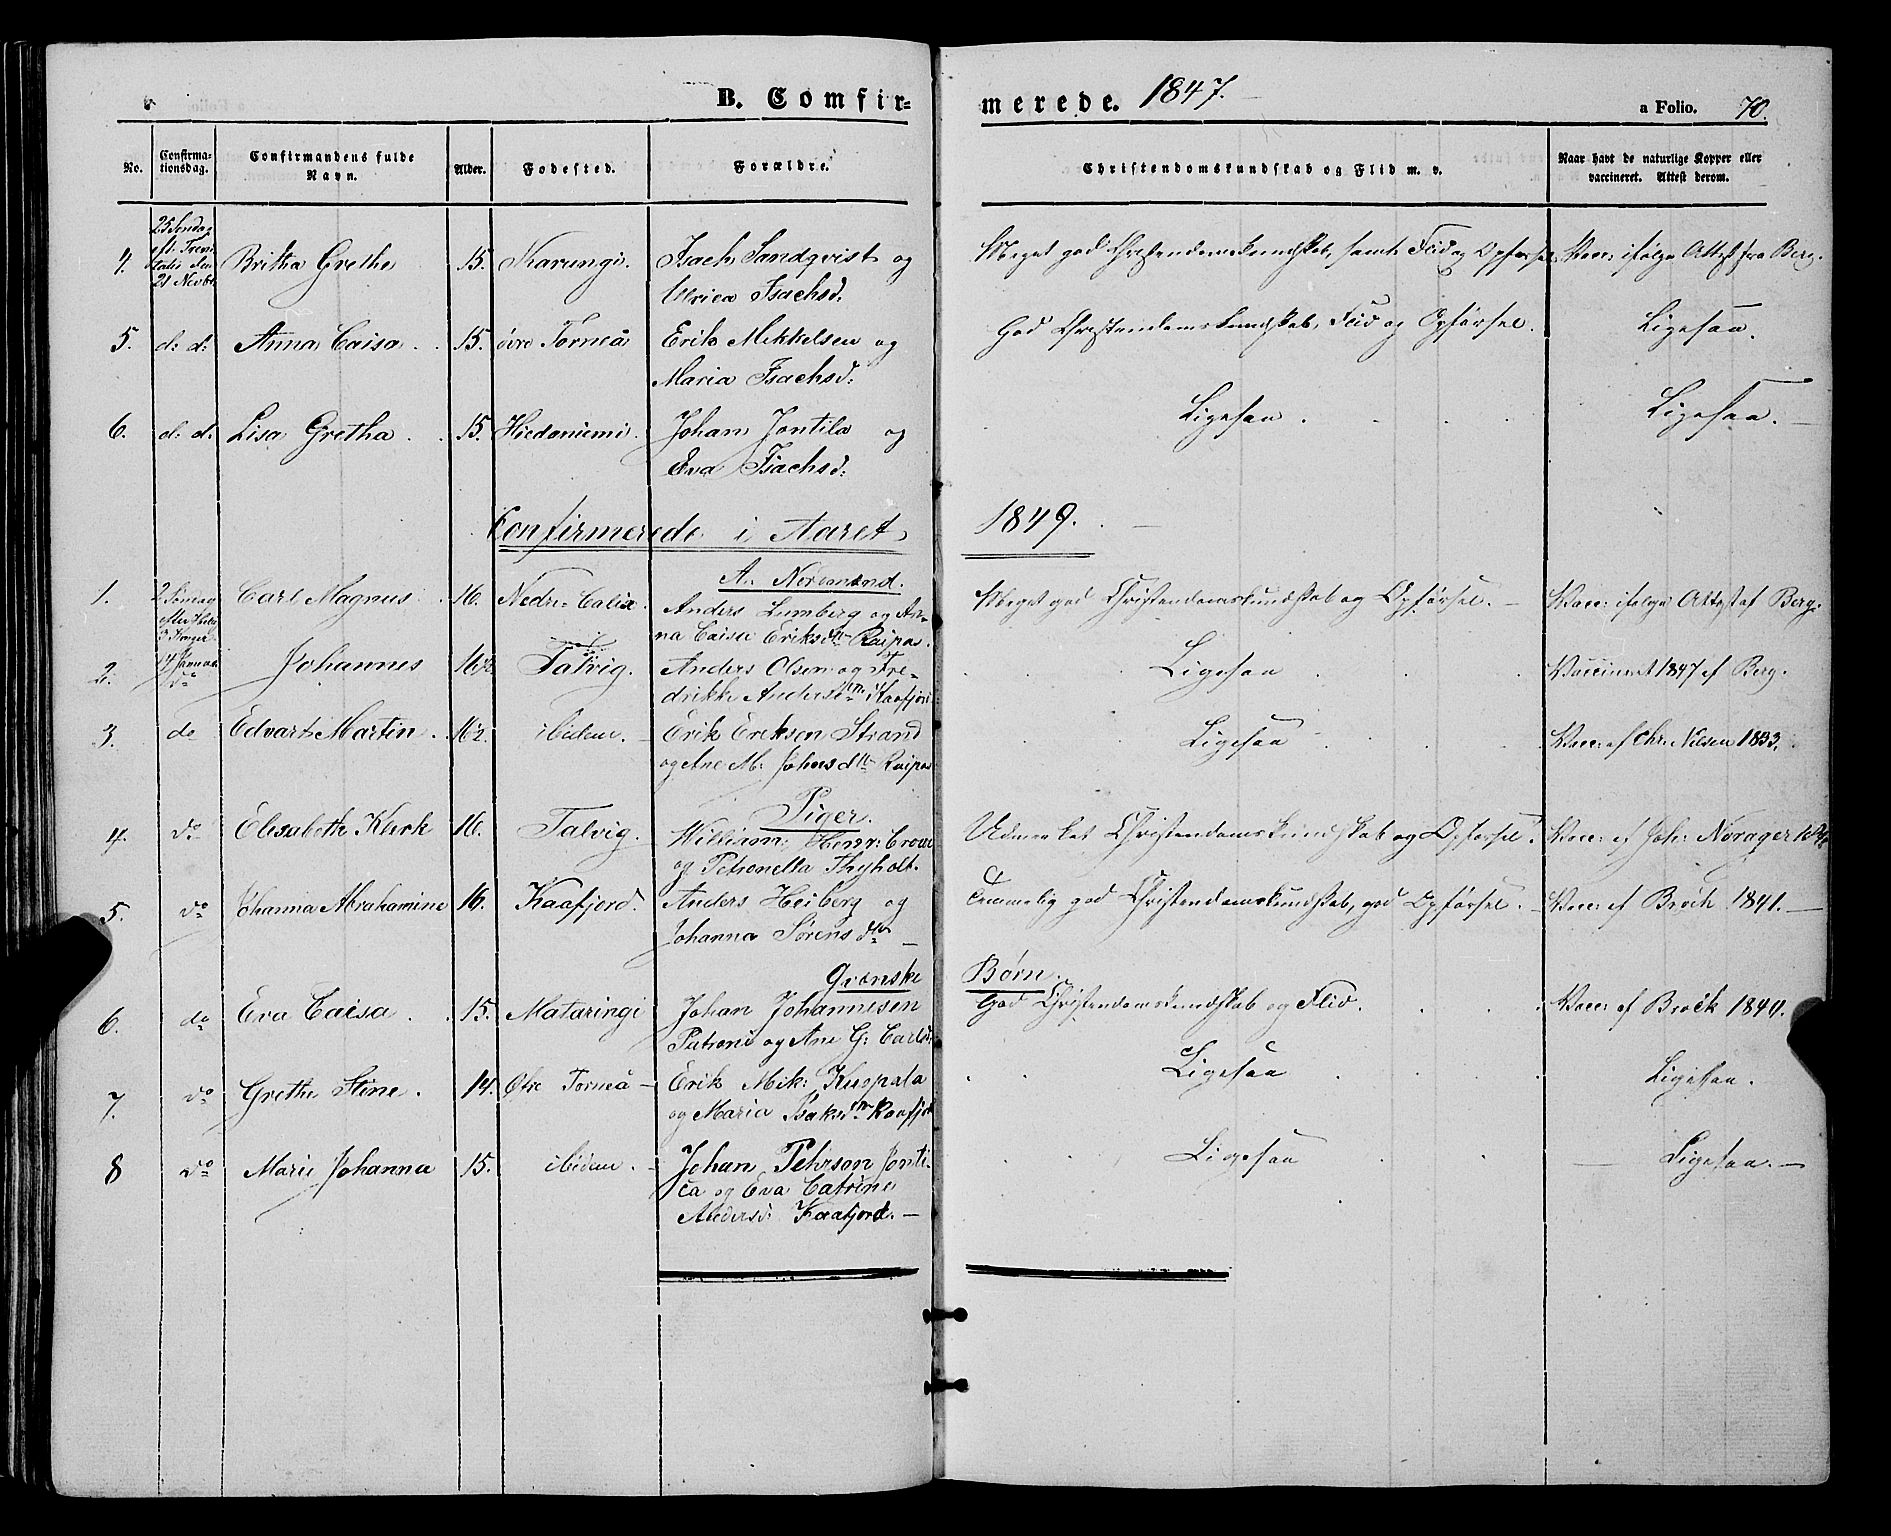 B. Comfir=
merede. 1847.
a Folio. 70.
No. Confirma-tionsdag. Confirmandens fulde Navn. Alder. Fodested. Forældre. Christendomskundskab og Flid m. v. Naar havt de naturlige Kopper eller vaccineret. Attest derom.
25 Søndag
eft: Trini
tatis den
21 Novbr
4. Britha Grethe 15. Karungi. Isach Sandqvist og Meget god Christendomskundskab, samt Flid og Opførsel Vacc: ifølge Attest fra Berg.
Ulrica Isachsd.
5. d: d: Anna Caisa. 15. övre Torneå Erik Mikkelsen og God Christendomskundskab, Flid og Opførsel. Ligesaa.
Maria Isachsd:
6. d: d: Lisa Gretha. 15. Hiedaniemi. Johan Jontila og Ligesaa. Ligesaa.
Eva Isachsd:
Confirmerede i Aaret 1849.
A. Normænd.
1. 2 Søndag Carl Magnus. 16. Nedre-Calix. Anders Lumberg og An- Meget god Christendomskundskab og Opførsel. Vacc: ifølge Attest af Berg.
efter Hellig
3 Konger
na Caisa Eriksdtr Raipas.
14 Januar
2. do Johannes 16½ Talvig. Anders Olsen og Fre- Ligesaa Vaccineret 1847 af Berg.
drikke Andersdtr i Kaafjord
3. do Edvart Martin. 16½. ibidem. Erik Eriksen Strand Ligesaa Vacc: af Chr: Nilsen 1833.
og Ane M: Johnsdtr Raipas
Piger.
4. do Elisabeth Klerk 16. Talvig. William: Henr: Crow Udmærket Christendomskundskab og Opførsel. Vacc: af Joh: Norager
og Petronella Thyholt.
5. do Johanna Abrahamine 16. Kaafjord. Anders Heiberg og Temmelig god Christendomskundskab, god Opførsel. Vacc: af Brock 1841.
Johanna Sørensdtr
Qvænske Børn.
6. do Eva Caisa. 15. Mataringi Johan Johannesen God Christendomskundskab og Flid. Vacc: af Brock 1840.
Patroni og Ane G: Carlsd:
7. do Grethe Stine. 14. Øvre Torneå Erik Mik: Kuopala Ligesaa Ligesaa.
og Maria Isaksdtr Kaafjord
8 do Marie Johanna 15. ibidem. Johan Pehrson Jonti- Ligesaa Ligesaa.
ca og Eva Catrine
Andersd: Kaafjord.